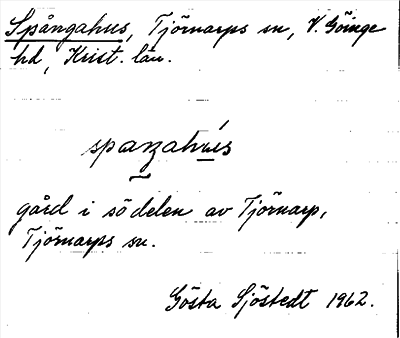 Spångahus, Tjörnarps sn, V. Göinge
hd, Krist. län.
spaŋahús
gård i sö delen av Tjörnarp,
Tjörnarps sn.
Gösta Sjöstedt 1962.